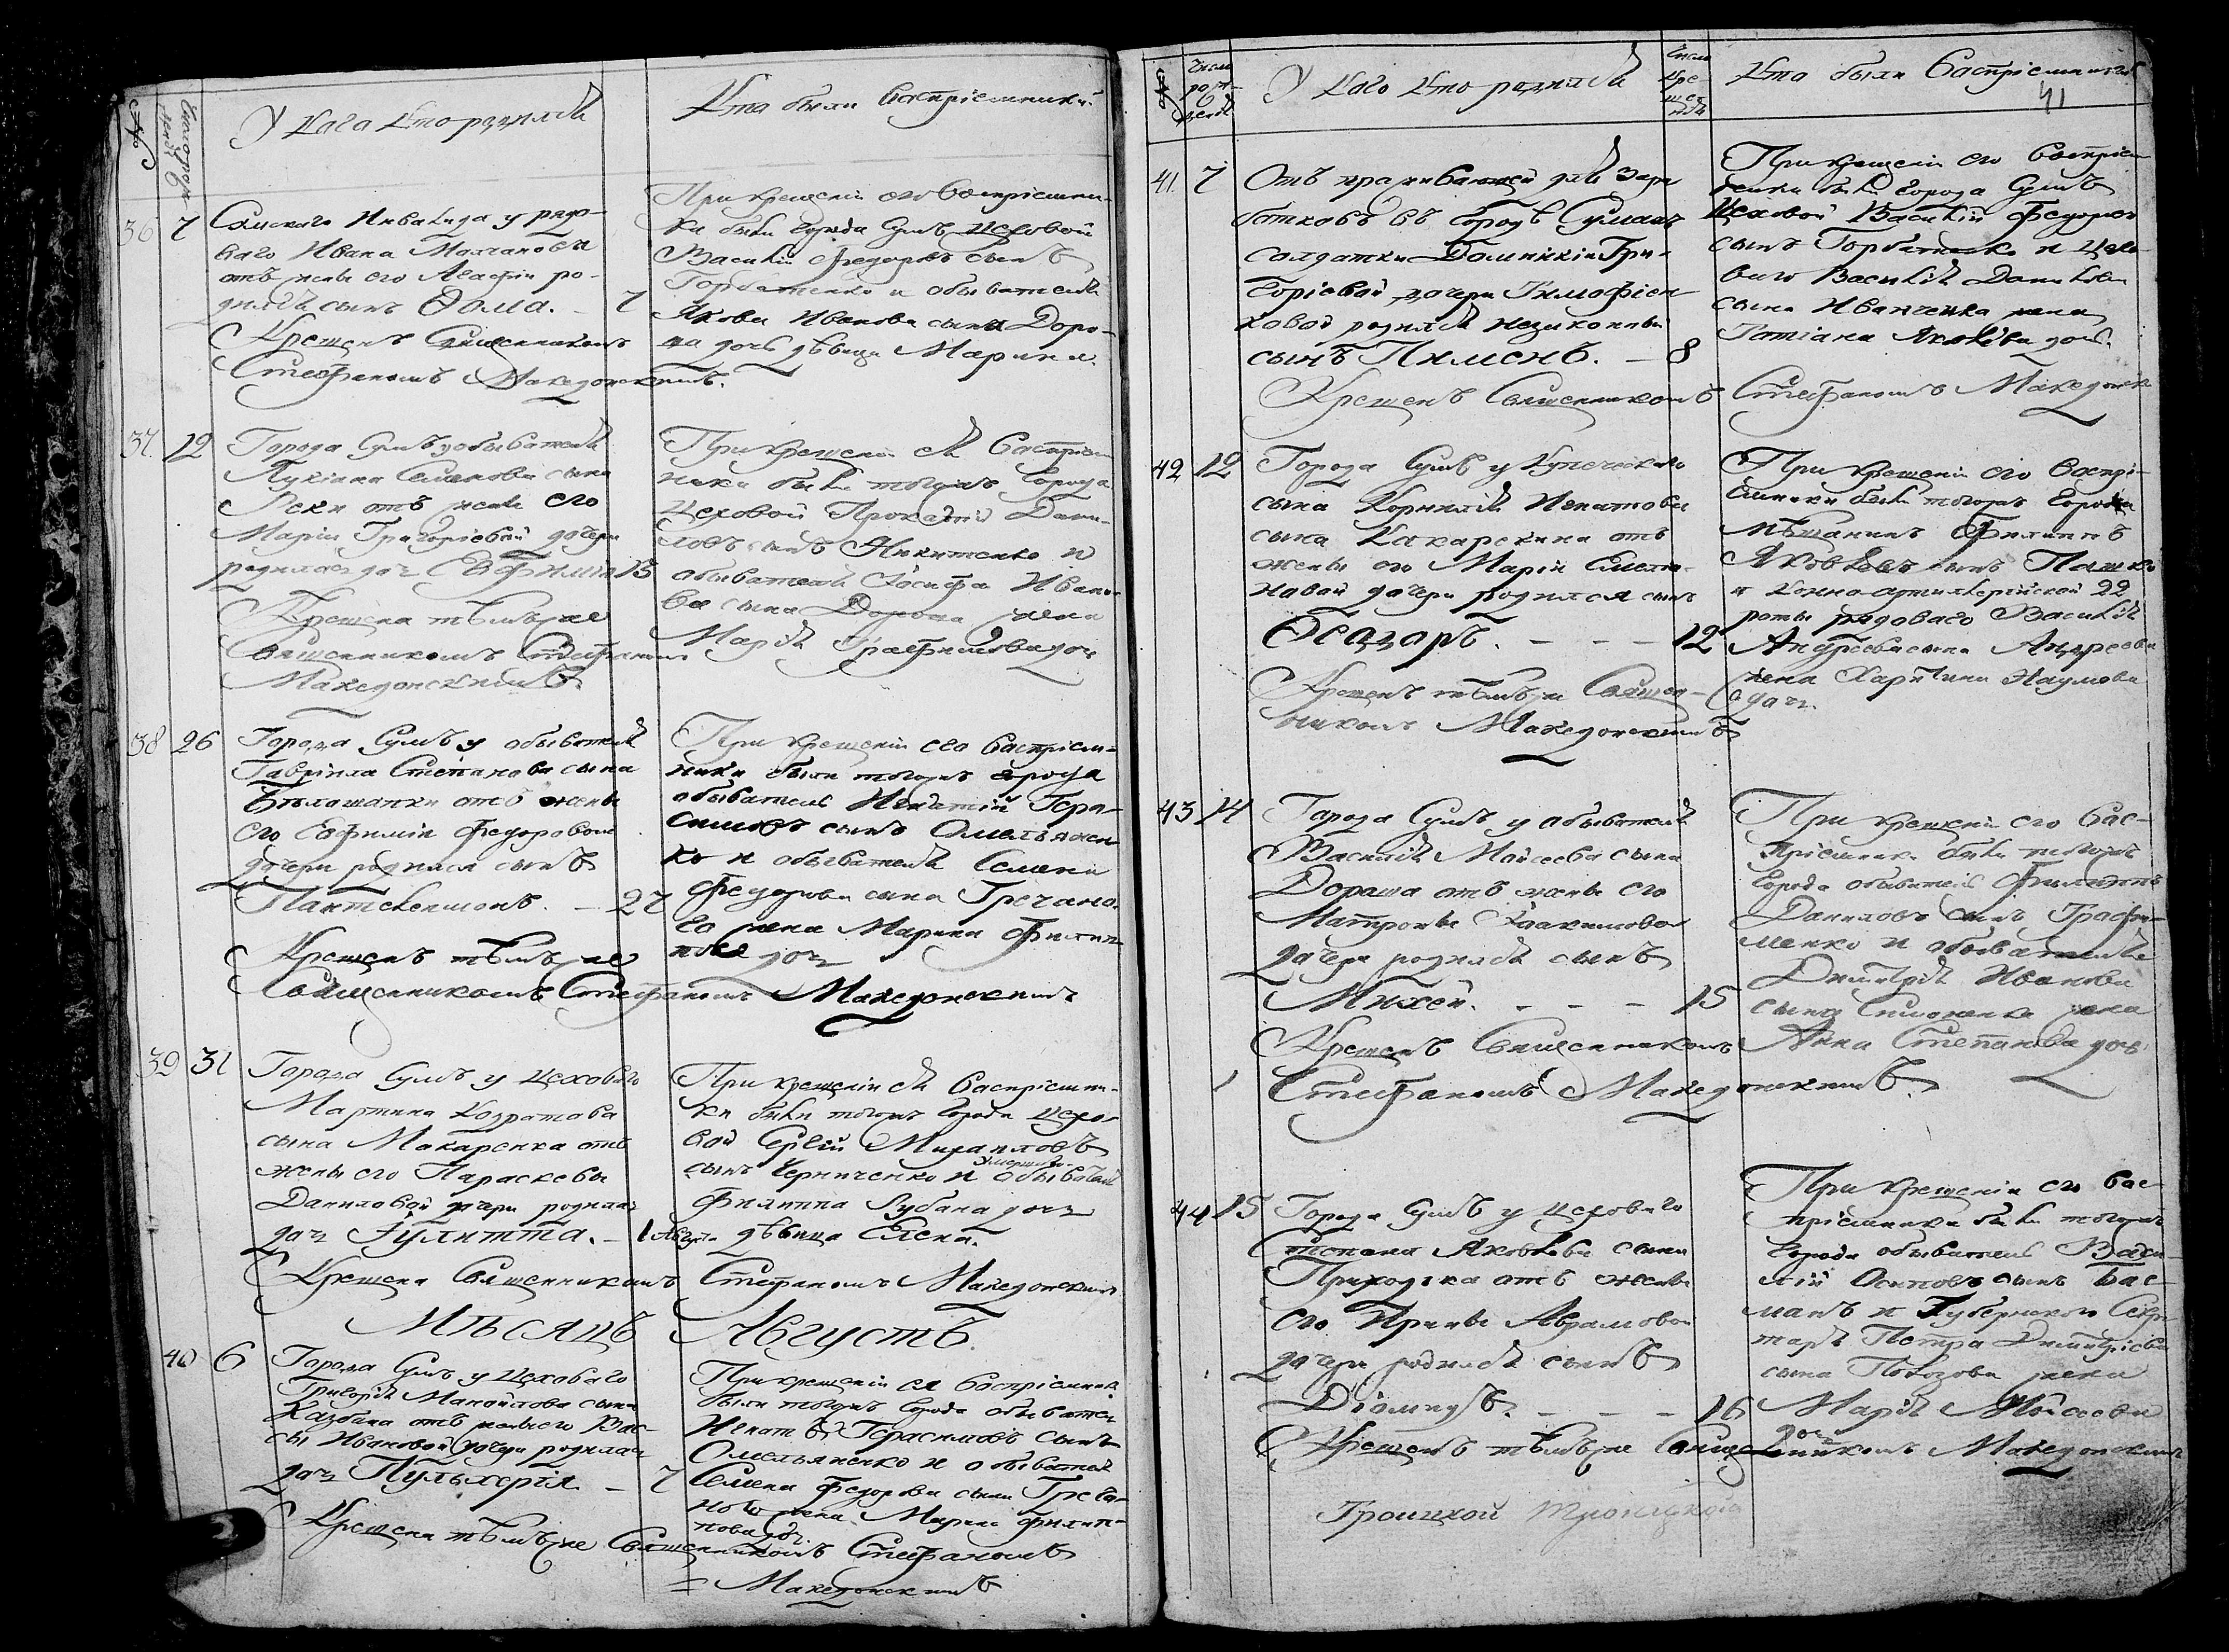 У кого кто родился
Кто были восприемники
36 7 Сумскаго Инвалида у рядо-
ваго Ивана Молчанова
отъ жены его Агафіи ро-
дился сынъ Ѳома. 7
Крещенъ Священникомъ
Стефаномъ Македонскимъ.
При крещеніи его восприемни-
ки были города Сумъ цеховой
Василій Федоровъ сынъ
Горбатенко и обывателя
Якова Иванова сына Доро-
ша дочь дѣвица Марина.
37. 12 Города Сумъ у обывателя
Лукіана Семенова сына
отъ жены его
Маріи Григоріевой дочери
родилась дочь Евфимія 13
Крещена тѣмъ же
священникомъ Стефаномъ
Македонскимъ.
При крещеніи ея восприем
ники были тогожъ города
цеховой Прокопій Дани-
ловъ сынъ Никитенко и
обывателя Іосифа Ивано-
ва сына Дороша жена
Марія Трофимова дочь
38 26 Города Сумъ у обывателя
Гавріила Степанова сына
Бѣлошапки отъ жены
его Евфиміи Федоровой
дочери родился сынъ
Пантелеимонъ. — 27
Крещенъ тѣмъ же
Священникомъ Стефаномъ Македонскимъ
При крещеніи его восприем-
ники были тогожъ города
обыватель Игнатій Гера-
симовъ сынъ Омельянен-
ко и обывателя Семена
Федорова сына Гречано-
го жена Марина Филип-
пова дочь
39 31 Города Сумъ у цеховаго
Мартина Кодратова
сына Макаренка отъ
жены его Параскевы
Даниловой дочери родилась
дочь Іулитта. — 1 Августа
Крещена Священникомъ Стефаномъ Македонскимъ
При крещеніи ея восприемни-
ки были тогожъ города цехо-
вой Сергій Михайловъ
сынъ Черниченко и умершаго обывателя
Филиппа Зубана дочь
дѣвица Елена.
Мѣсяцъ Августъ.
40 6 Города Сумъ у цеховаго
Григорія Манойлова сына
Казбана отъ жены его Вас-
сы Ивановой дочери родилась
дочь Пульхерія — 7
Крещена тѣмъ же Священникомъ Стефаномъ
Македонскимъ
При крещеніи ея восприемники
были тогожъ города обыватель
Игнатій Герасимовъ сынъ
Омельяненко и обывателя
Семена Федорова сына Греча-
ного жена Марина Филип-
пова дочь.
У кого кто родился
Число кре-
ще-
нія
Кто были восприемники
41
41. 7 Отъ проживающей для зара
ботковъ въ городѣ Сумахъ
солдатки Домникіи Гри-
горіевой дочери Тимофеен
ковой родился незаконный
сынъ Пименъ. — 8
Крещенъ Священникомъ Стефаномъ Македонск
При крещеніи его восприем
ники были города Сумъ
Цеховой Василій Федоровъ
сынъ Горбатенко и цехо-
ваго Василія Данилова
сына Иванченка жена
Татіана Яковлева дочь.
42 12 Города Сумъ у купеческаго
сына Корнилія Игнатова
сына отъ
жены его Маріи Семено-
новой дочери родился сынъ
— — — 12
Крещенъ тѣмъ же Священ-
никомъ Македонскимъ
При крещеніи его воспри-
емники были тогожъ города
мѣщанинъ Филиппъ
Яковлевъ сынъ
и конно-артиллерійской 22
роты рядоваго Василія
Андреева сына Андреева
жена Харитина Наумова
дочь.
43 14 Города Сумъ у обывателя
Василія Моисеева сына
Дороша отъ жены его
Матроны Іоакимовой
дочери родился сынъ
Михей. — — — 15
Крещенъ Священникомъ
Стефаномъ Македонскимъ.
При крещеніи его вос-
приемники были тогожъ
города обыватель Филиппъ
Даниловъ сынъ Трофи-
менко и обывателя
Димитрія Иванова
сына Симоненка жена
Анна Степанова дочь.
44 15 Города Сумъ у цеховаго
Стефана Яковлева сына
Приходька отъ жены
его Ирины Аврамовой
дочери родился сынъ
Діомидъ. — — — 16
Крещенъ тѣмъ же Священникомъ Македонскимъ
При крещеніи его вос
приемники были тогожъ
города обыватель Васи-
лій Осиповъ сынъ Бас-
манъ и Губернскаго Секре-
таря Петра Димитріева
сына жена
Марія Моисеева
дочь
Троицкой Троицкой